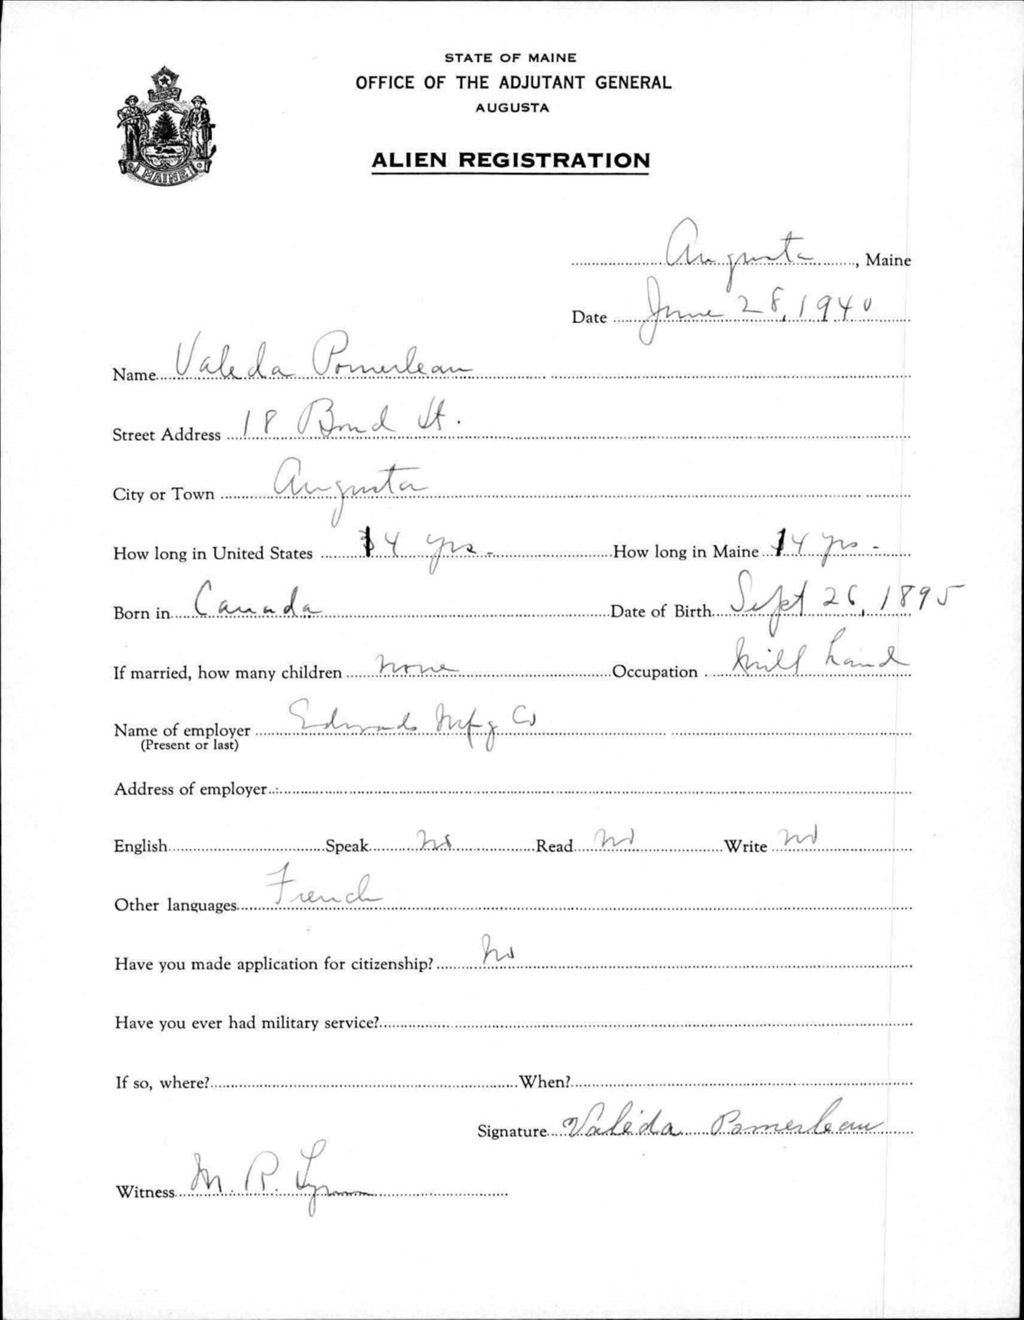 STATE OF MAINE
OFFICE OF THE ADJUTANT GENERAL
AUGUSTA
ALIEN REGISTRATION
MAINE
Augusta, Maine
Date June 28, 1940
Name Valeda Pomerleau
Street Address 18 Bond St.
City or Town Augusta
How long in United States 14 yrs. How long in Maine 14 yrs.
Born in Canada Date of Birth Sept 26, 1895
If married, how many children none Occupation Mill hand
Name of employer Edwards Mfg Co
(Present or last)
Address of employer
English Speak no Read no Write no
Other languages French
Have you made application for citizenship? no
Have you ever had military service?
If so, where? When?
Signature Valéda Pomerleau
Witness M. R. Lynn